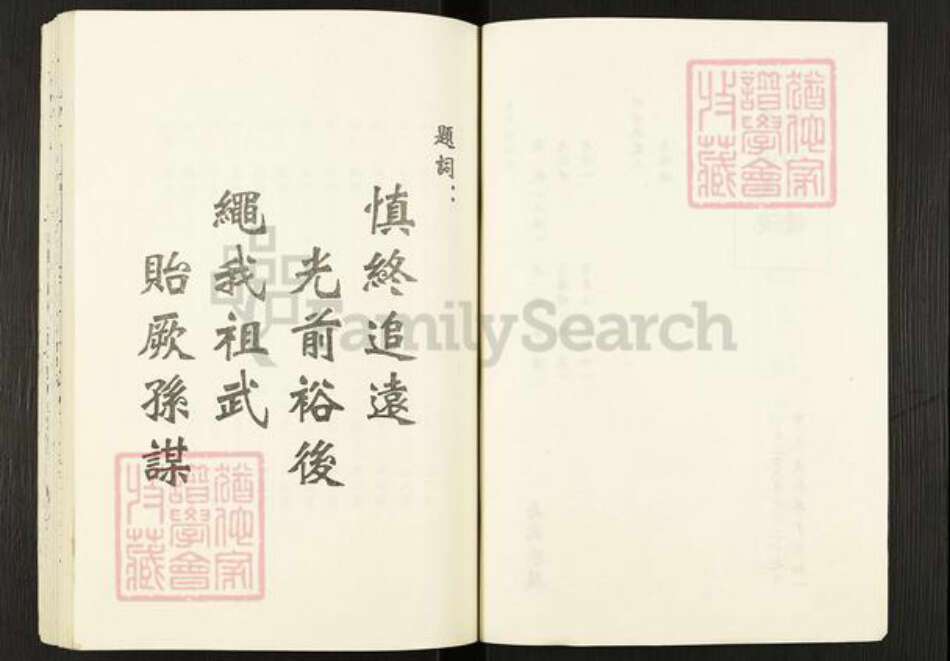 題詞：
慎終追遠
光前裕後
繩我祖武
貽厥孫謀
FamilySearch
猶他家
譜學會
特藏
猶他家
譜學會
特藏